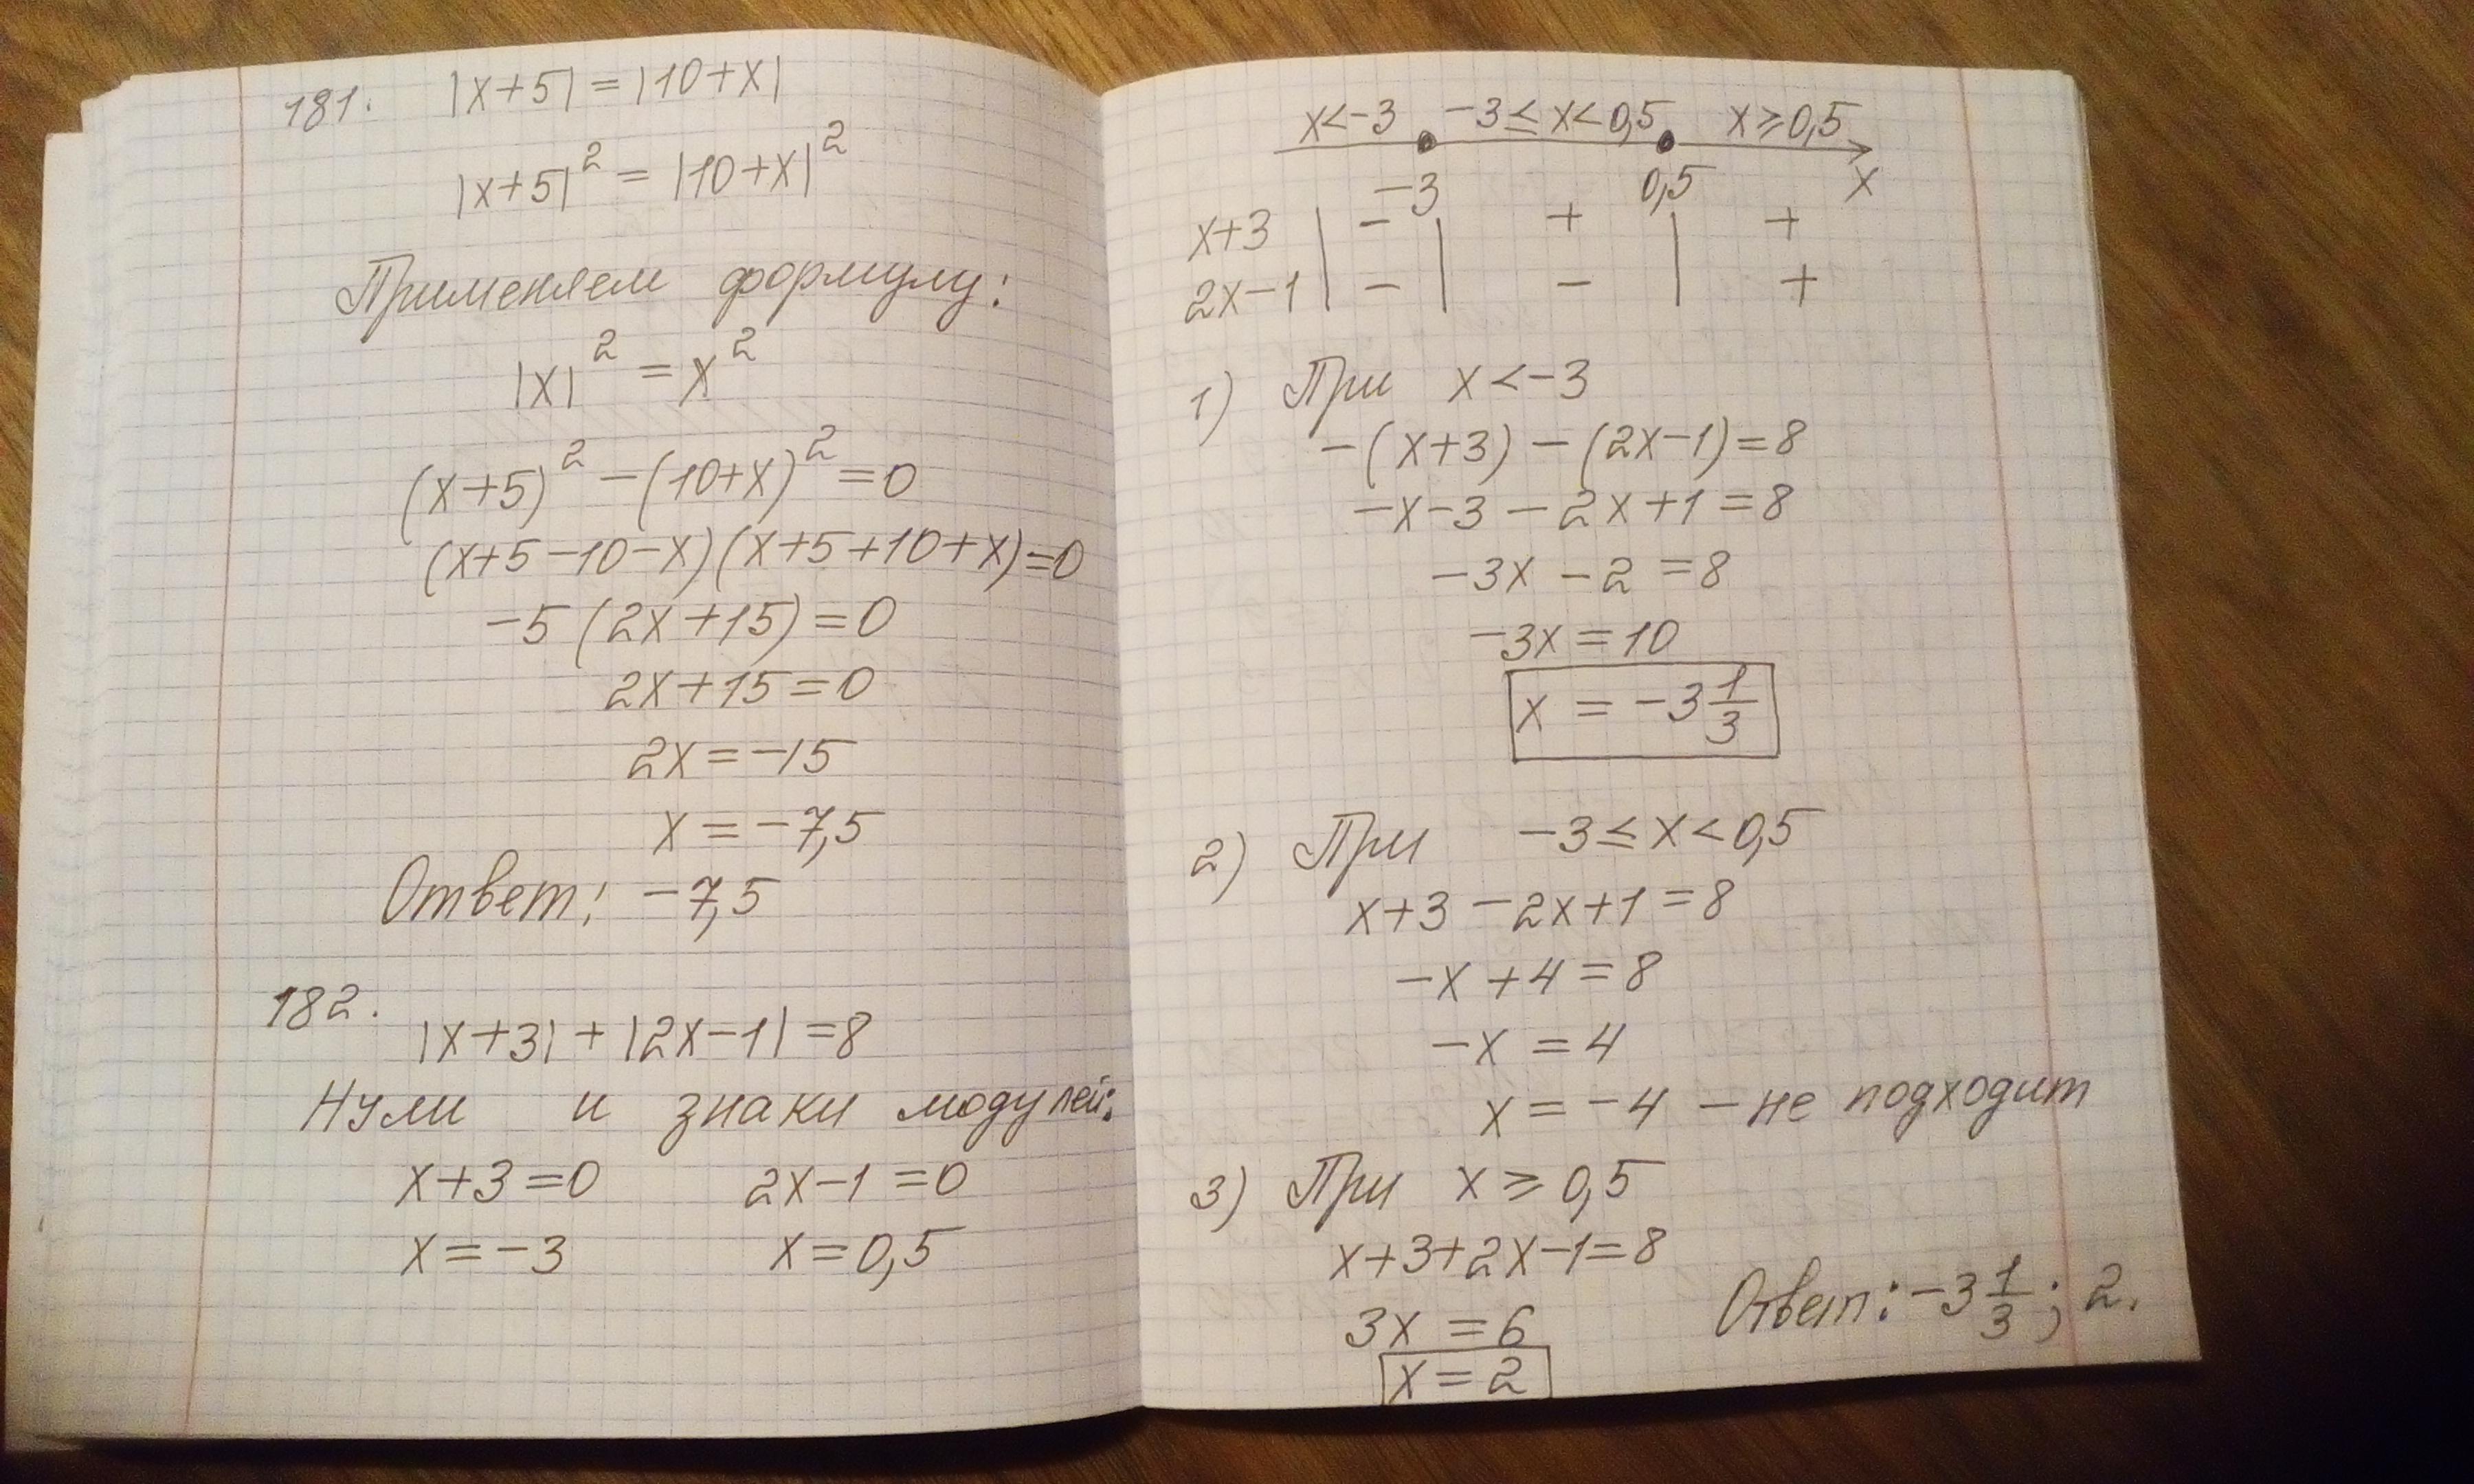 181. |x+5| = |10+x|
|x+5|² = |10+x|²
Применяем формулу:
|x|² = x²
(x+5)² − (10+x)² = 0
(x+5−10−x)(x+5+10+x)=0
−5(2x+15)=0
2x+15=0
2x=−15
x=−7,5
Ответ: −7,5
182. |x+3| + |2x−1| = 8
Нули и знаки модулей:
x+3=0 2x−1=0
x=−3 x=0,5
x<−3 −3≤x<0,5 x≥0,5
−3 0,5 x
x+3 | − | + | +
2x−1 | − | − | +
1) При x<−3
−(x+3)−(2x−1)=8
−x−3−2x+1=8
−3x−2=8
−3x=10
x = −3 1/3
2) При −3≤x<0,5
x+3−2x+1=8
−x+4=8
−x=4
x=−4 − не подходит
3) При x≥0,5
x+3+2x−1=8
3x=6
x=2
Ответ: −3 1/3; 2.